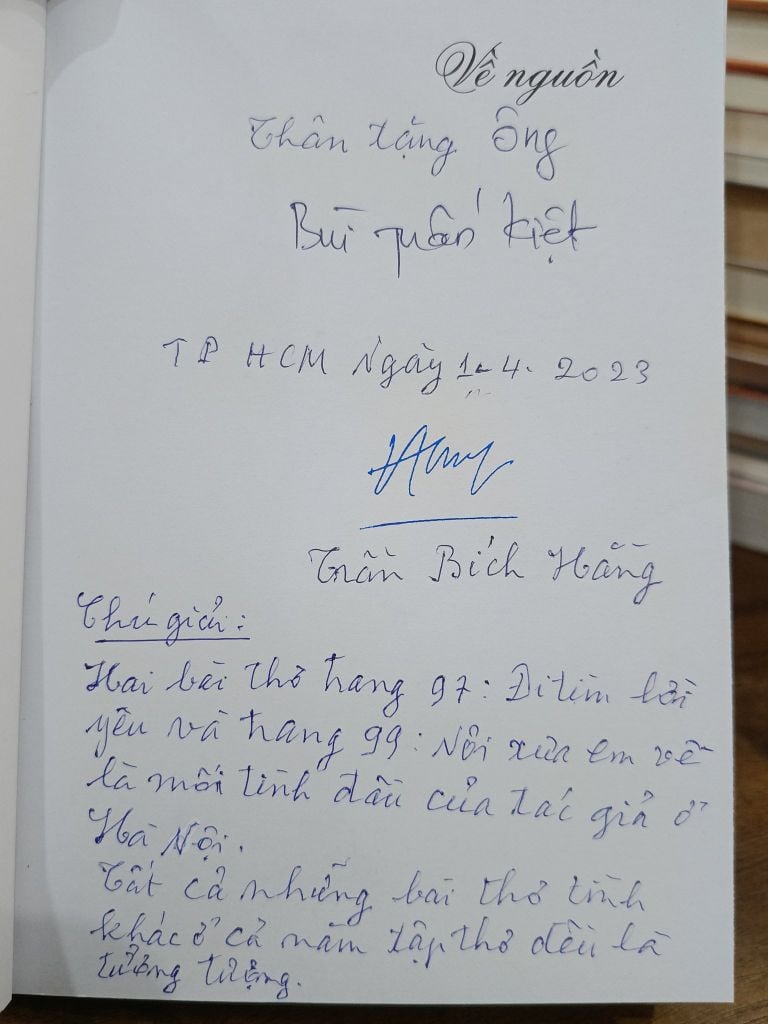 Về nguồn
Thân tặng Ông
Bùi Tuấn Kiệt
TP HCM Ngày 1-4-2023
Trần Bích Hằng
Chú giải:
Hai bài thơ trang 97: Đi tìm lời
yêu và trang 99: Nội xưa em về
là mối tình đầu của tác giả ở
Hà Nội.
Tất cả những bài thơ tình
khác ở cả năm tập thơ đều là
tưởng tượng.